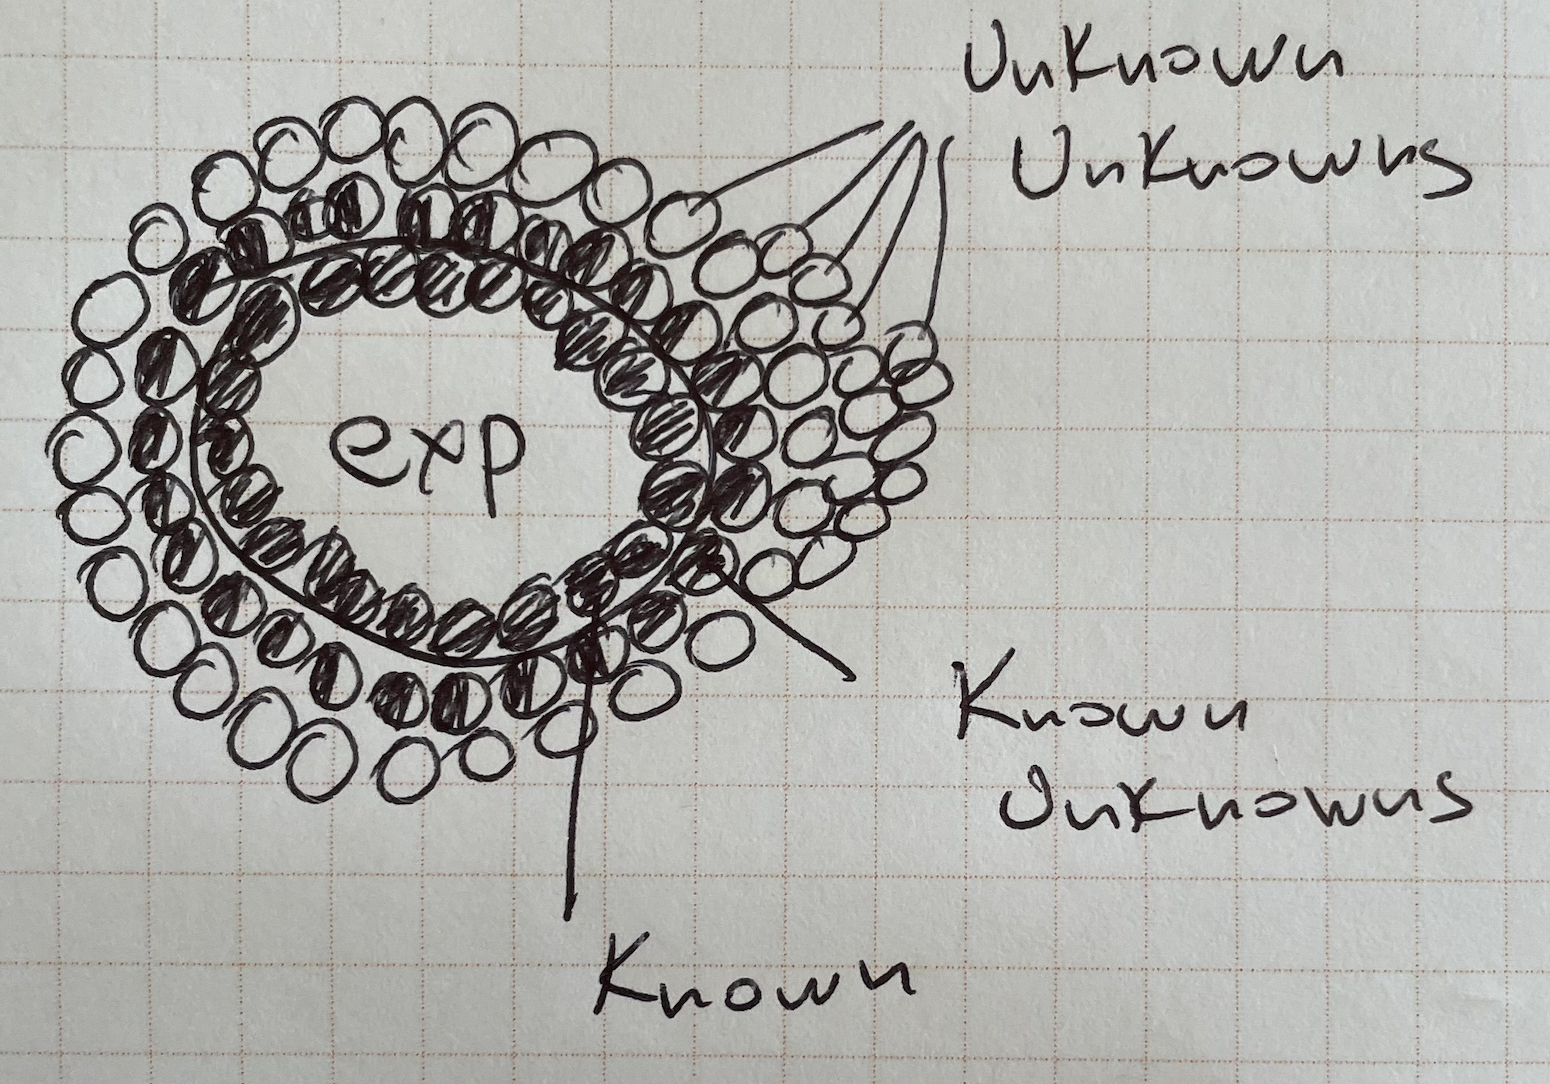 Unknown
Unknowns
exp
Known
Unknowns
Known